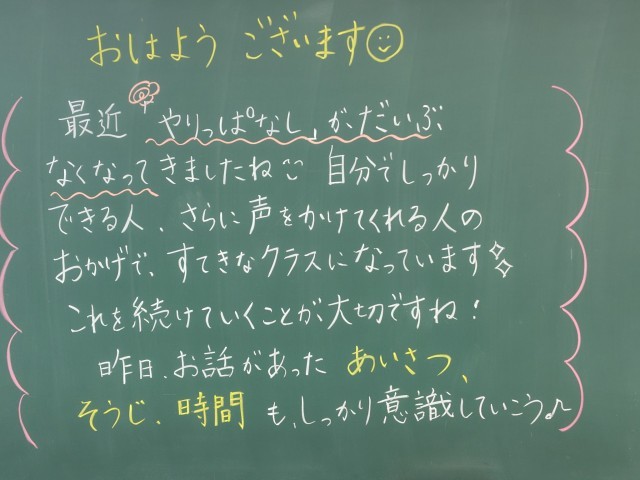 おはようございます☺
最近「やりっぱなし」がだいぶ
なくなってきましたね 自分でしっかり
できる人、さらに声をかけてくれる人の
おかげで、すてきなクラスになっています
これを続けていくことが大切ですね！
昨日、お話があった あいさつ、
そうじ、時間 も、しっかり意識していこう♪